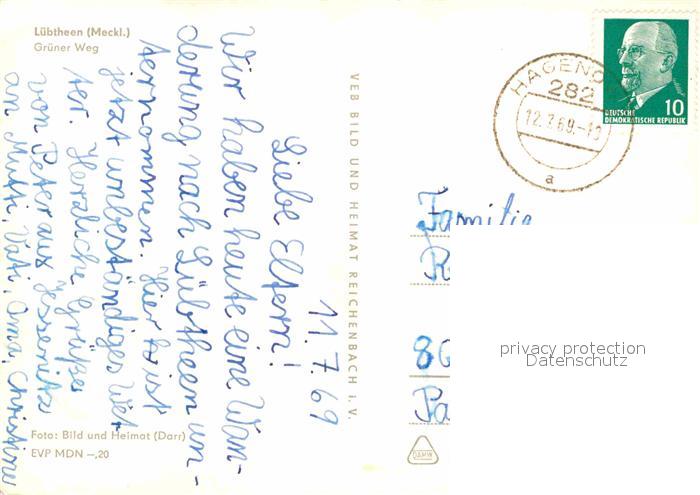 Lübtheen (Meckl.)
Grüner Weg
11.7.69
Liebe Eltern!
Wir haben heute eine Wan-
derung nach Lübtheen un-
ternommen. Hier ist
jetzt unbeständiges Wet-
ter. Herzliche Grüße
von Peter aus Jessenitz
an Mutti, Vati, Oma, Christine
Foto: Bild und Heimat (Darr)
EVP MDN –,20
VEB BILD UND HEIMAT REICHENBACH i. V.
HAGENOW
282
12.7.69.-10
a
10
DEUTSCHE
DEMOKRATISCHE REPUBLIK
Familie
R
privacy protection
Datenschutz
80